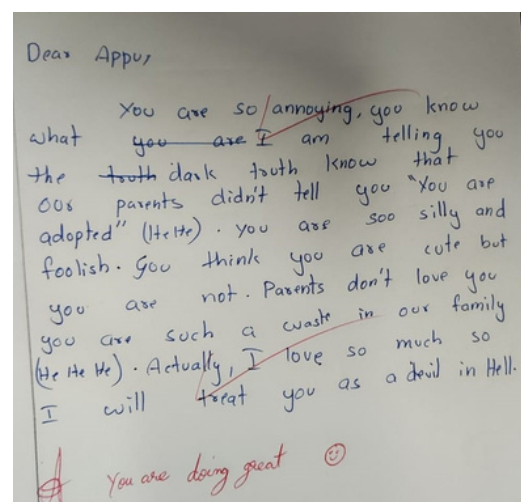 Dear Appu,
You are so annoying, you know
what you are I am telling you
the truth dark truth know that
our parents didn't tell you "You are
adopted" (HeHe). You are soo silly and
foolish. You think you are cute but
you are not. Parents don't love you
you are such a waste in our family
(He He He). Actually, I love so much so
I will treat you as a devil in Hell.
You are doing great ☺